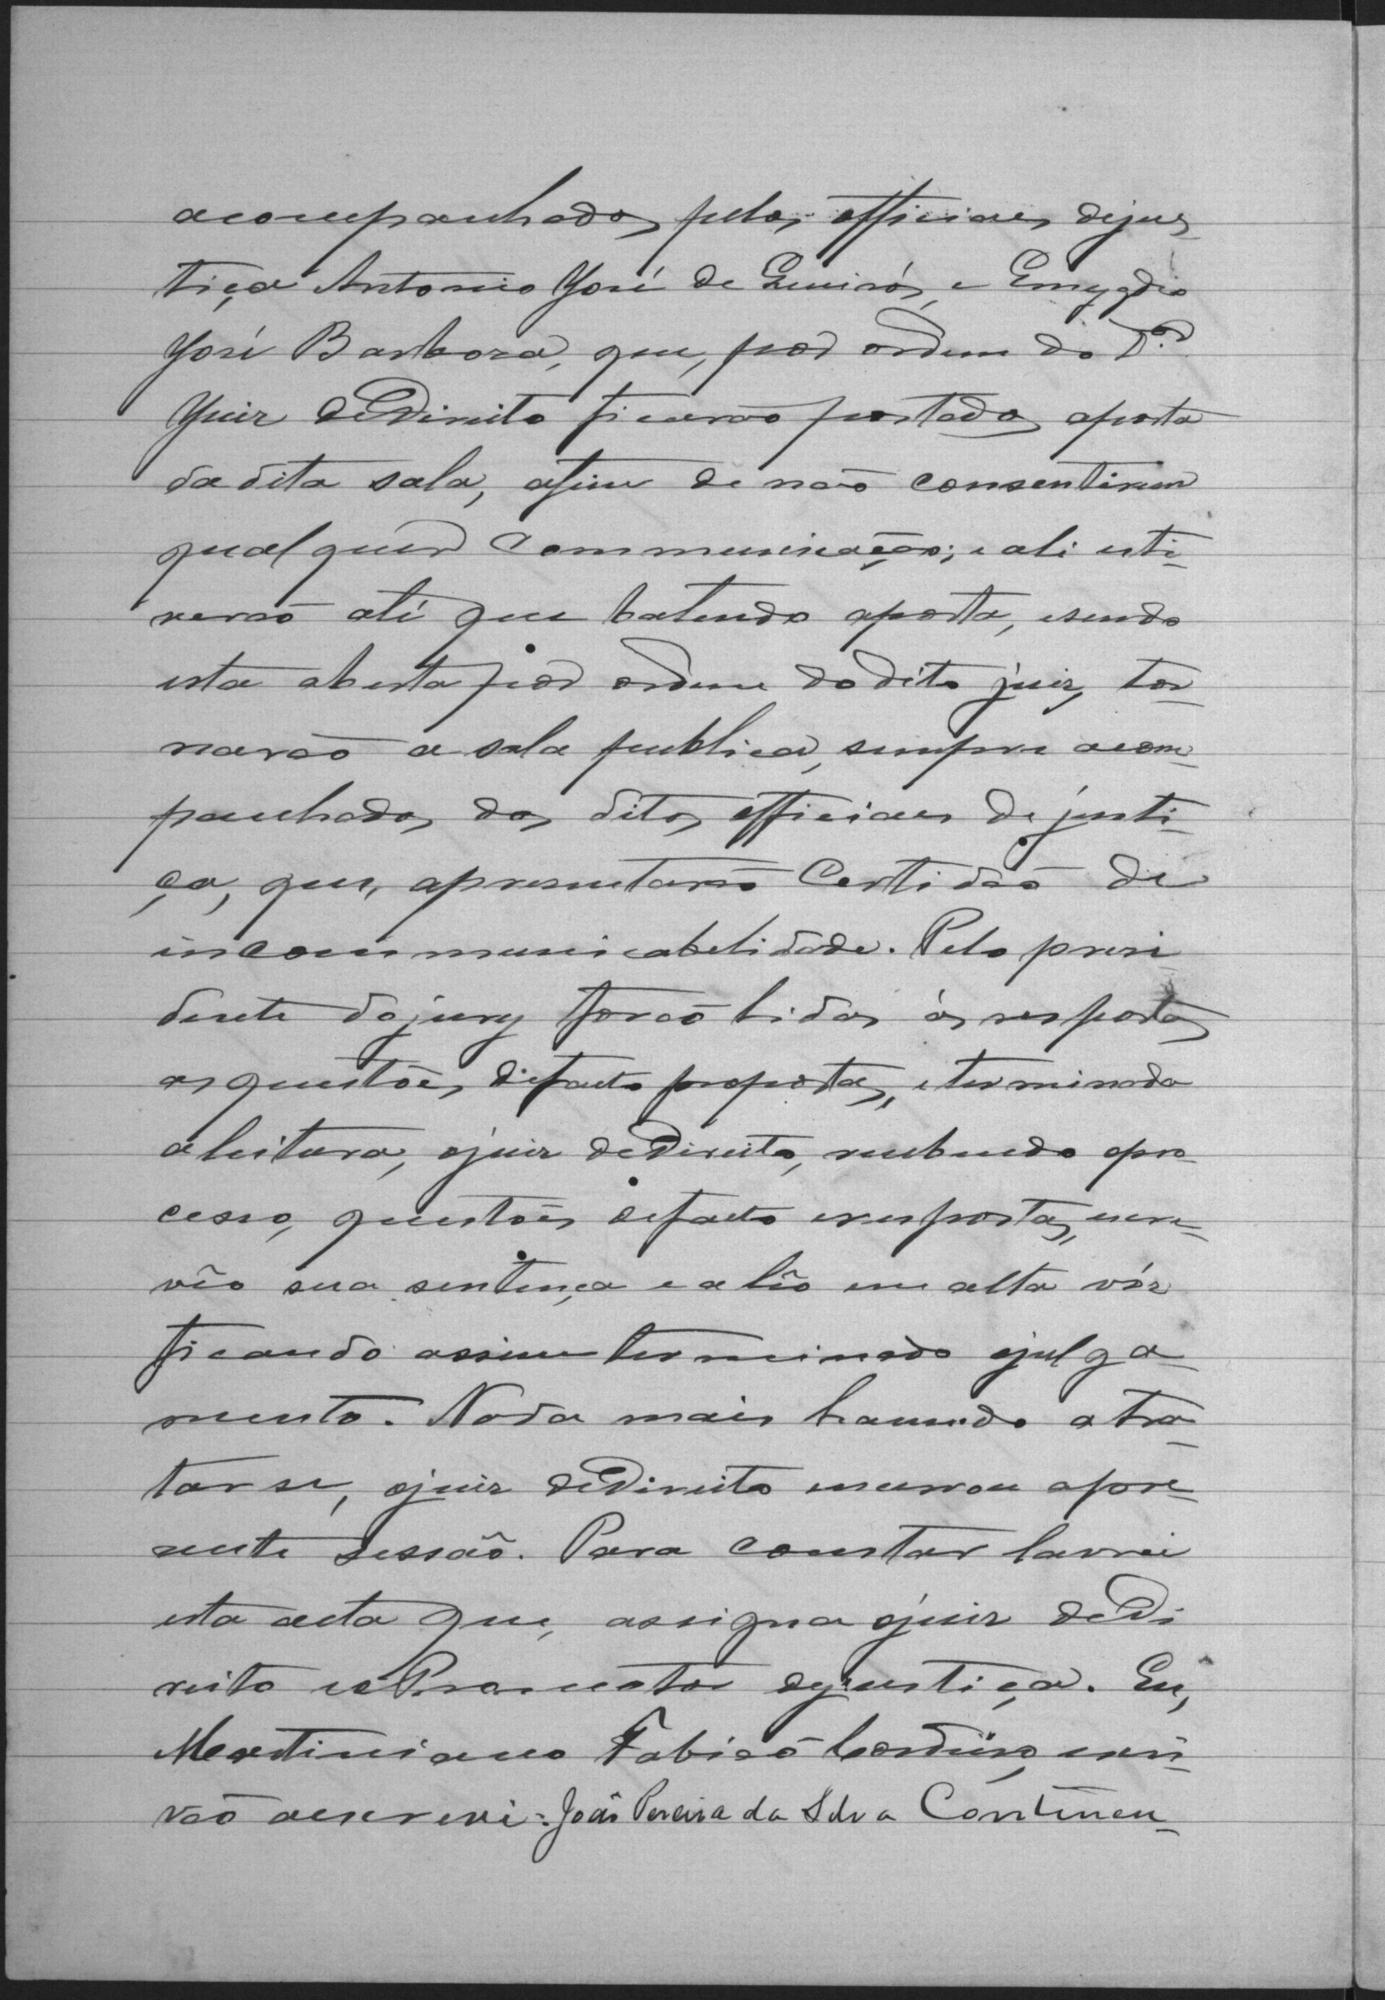 acompanhados pelos officiaes dejus-
tiça Antonio José de Queirós, e Emygdio
José Barboza, que, por ordem do Dor.
Juiz deDireito ficarão postados aporta
dadita sala, afim de não consentirem
qualquer communicação; e ali esti-
verão até que batendo aporta, esendo
esta aberta por ordem dodito juiz, tor-
narão a sala publica, sempre acom-
panhados dos ditos officiaes de justi-
ça, que, apresentarão Certidão de
incommunicabelidade. Pelo presi
dente dojury forão lidas ás respostas
as questões defacto propostas, eterminada
aleitura, ojuiz deDireito, recebendo opro
cesso, questões defacto erespostas, escre-
vêo sua sentença e a lêo em alta vóz
ficando assim terminado ojulga-
mento. Nada mais havendo atra-
tar se, ojuiz deDireito encerrou apre-
sente sessão. Para constar lavrei
esta acta que, assigna ojuiz deDi
reito eoPromotor dejustiça. Eu,
Martiniano Fabião Cordeiro, escri-
vão aescrevi = João Pereira da Silva Continen-